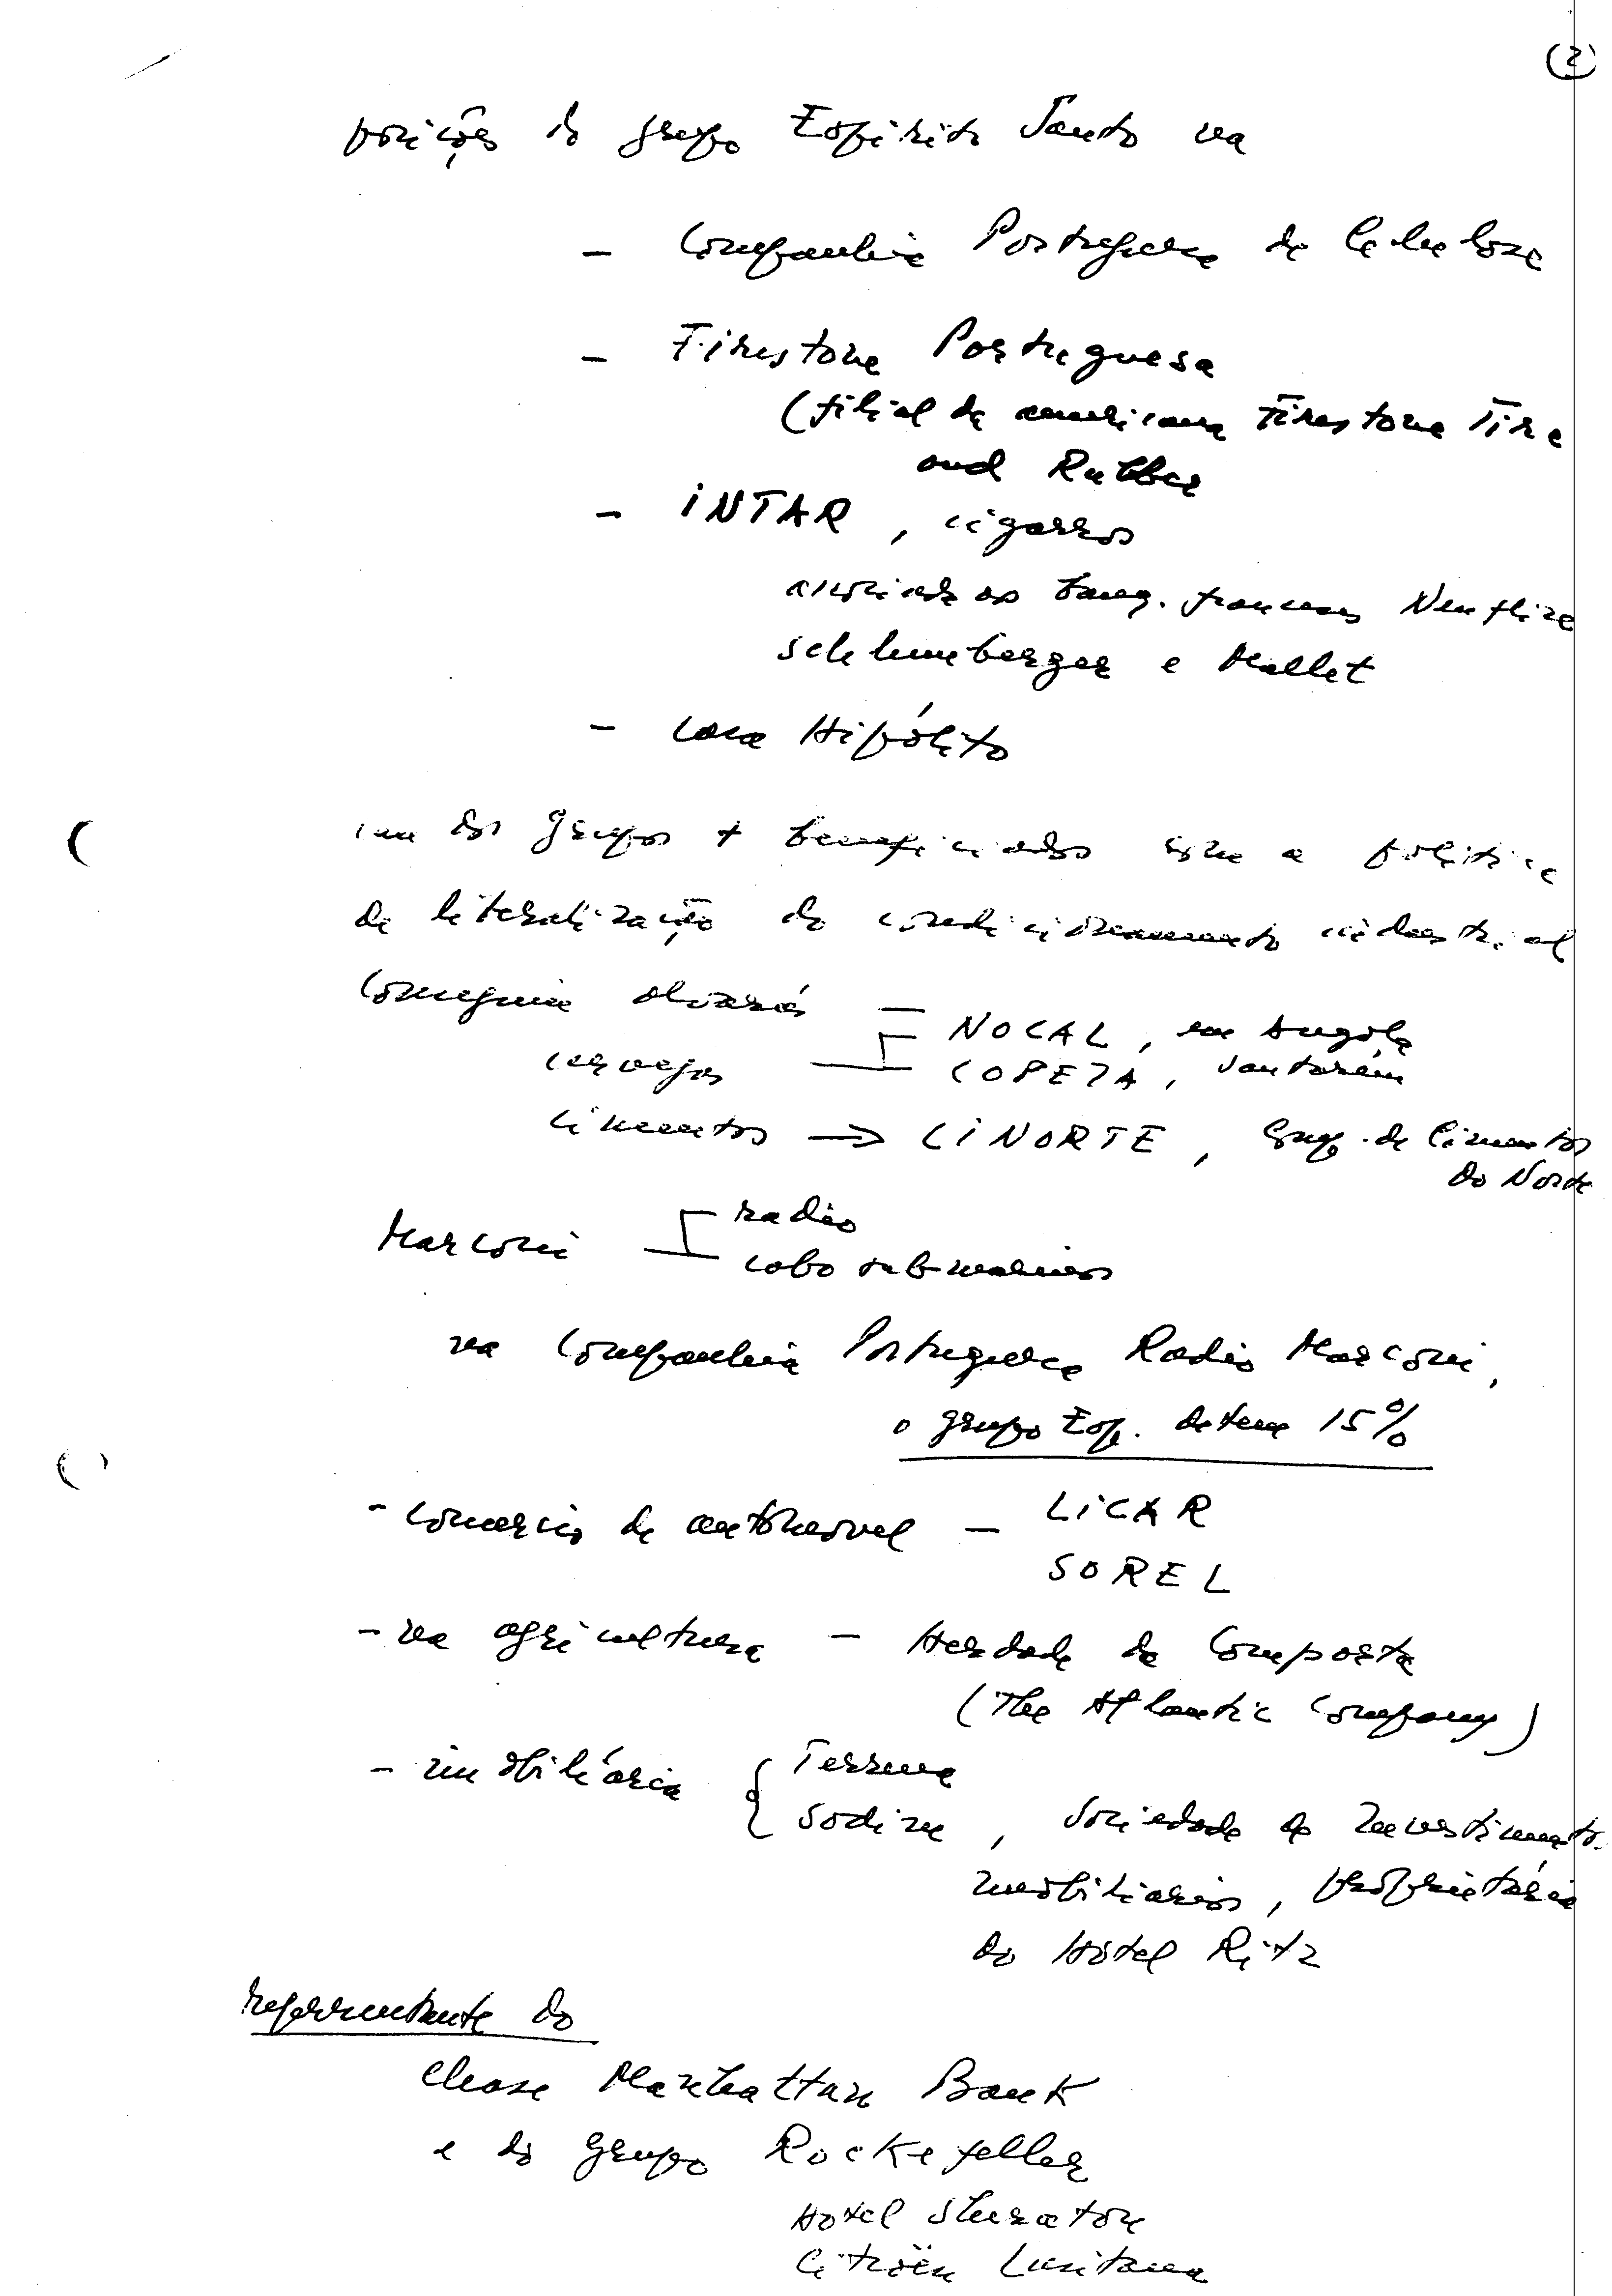 (2)
posições do grupo Espírito Santo na
- Companhia Portuguesa de Celulose
- Firestone Portuguesa
(filial da americana Firestone Tire
and Rubber
- INTAR, cigarros
associada ao banq. franceses Neuflize
Schlumberger e Mallet
- Casa Hipólito
um dos grupos + beneficiados com a política
de liberalização do condicionamento industrial
Conseguiu alvarás
cervejas NOCAL, em Angola
COPEJA, Santarém
Cimentos → CINORTE, Comp. de Cimentos
do Norte
Marconi radio
cabo submarinos
na Companhia Portuguesa Radio Marconi,
o grupo Esp. detem 15%
- comercio de automovel - LICAR
SOREL
- na agricultura - Herdade da Comporta
(The Atlantic Company)
- imobiliária { Terrume
Sodim, Sociedade de Investimentos
imobiliarios, proprietária
do Hotel Ritz
representante do
Chase Manhattan Bank
e do grupo Rockefeller
Hotel Sheraton
Citroën Lusitana